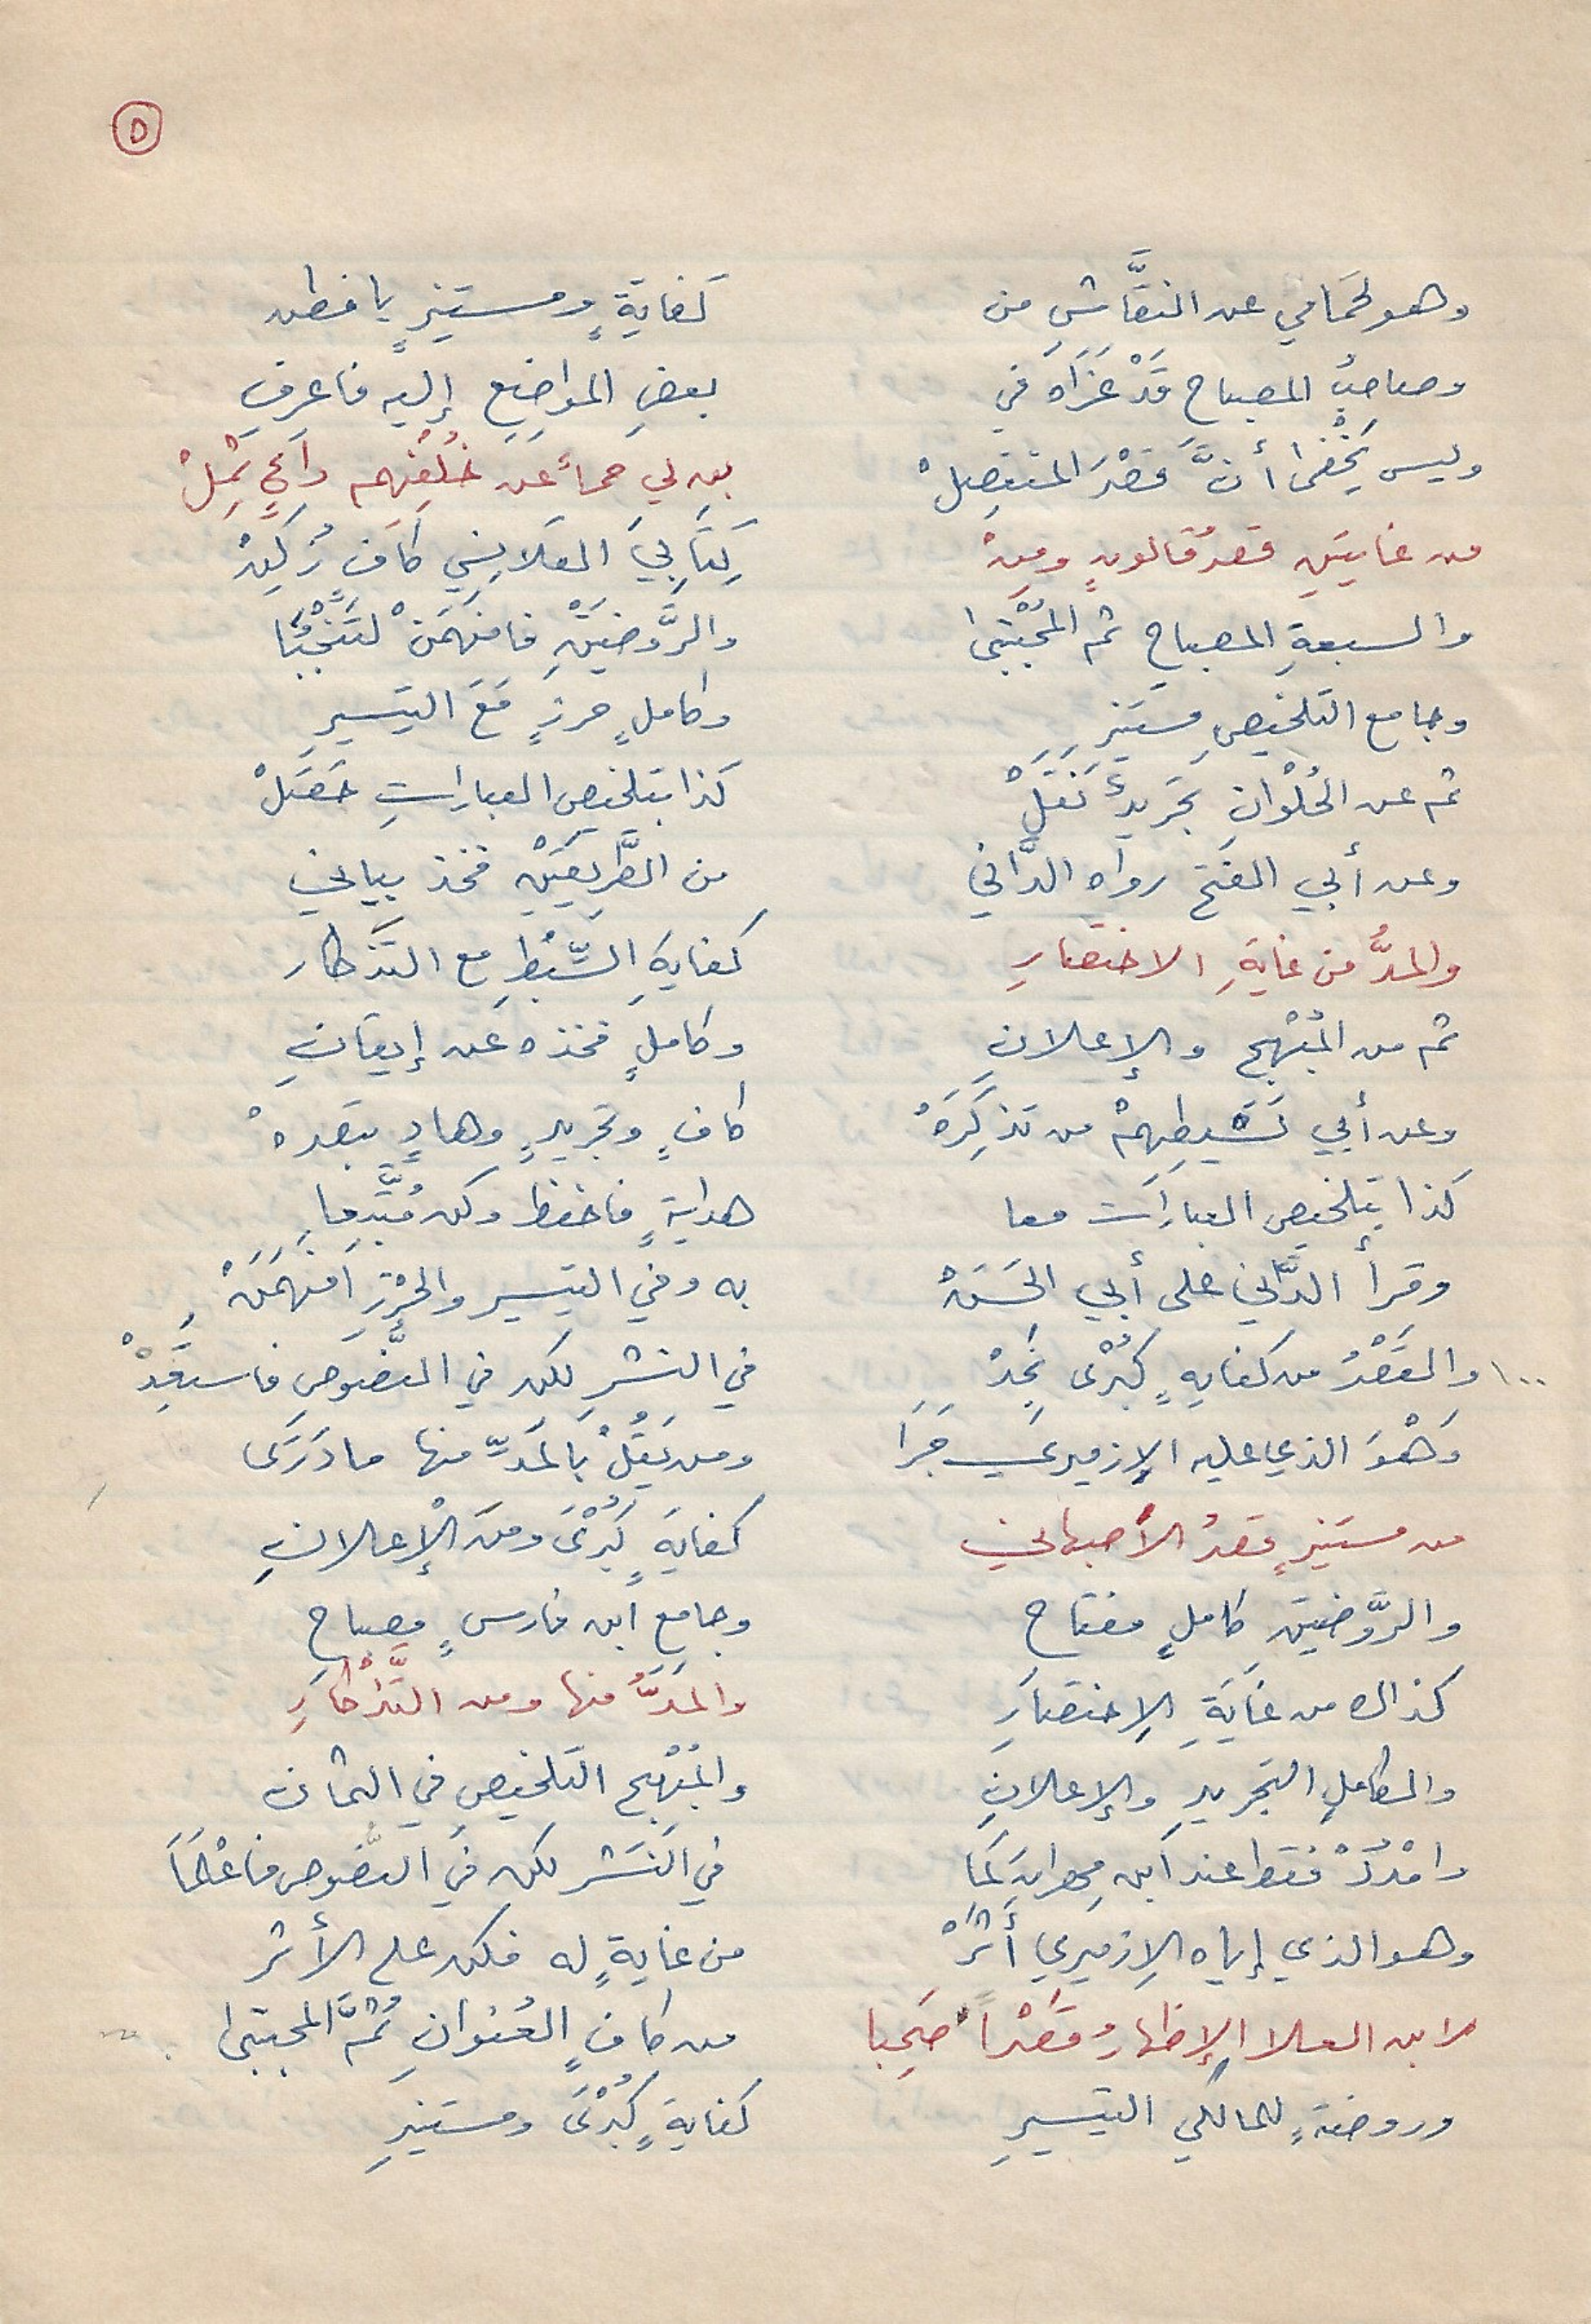 ٥
وهو لحَمَامي عن النقَّاشِ من كفايةٍ ومستنيرٍ يا فطن
وصاحبُ المصباح قَدْ عَزَاه في بعضِ المواضِعِ إليه فاعرِفِ
وليس يَخْفى أنَّ قَصْرَ المنفصِلْ
من غايتَيِ قصرُ قالونٍ ومِنْ كِتَابَيِ القلانِسِي كافٍ زُكِنْ
والسبعةِ المصباحِ ثم المُجْتبى والرَّوضَتَيْنِ فافهَمَنْ
وجامعِ التلخيصِ مستنيرِ وكاملٍ حرزٍ مَعَ التيسيرِ
ثم عن الحُلْوانِ تجريدٌ نَقَلْ كذا بتلخيصِ العباراتِ حَصَلْ
وعن أبي الفتح رواه الدَّاني من الطَّرِيقَيْنِ فخذ بياني
والمدُّ من غايةِ الاختصارِ كفايةِ السِّبْطِ مع التذكار
ثم من المُبْهِج والإعلانِ وكاملٍ فخذه عن إيقانِ
وعن أبي نَشيطِهِمْ من تذكِرَهْ كافٍ وتجريدٍ وهادٍ تبصرهْ
كذا بتلخيص العبارَات معا هدايةٍ فاحفظ وكن مُتَّبِعا
وقرأ الدَّاني على أبي الحَسَنْ به وفي التيسير والحِرْزِ افهَمَنْ
١٠٠ والقَصْرُ من كفايةٍ كُبْرى تجِدْ في النشرِ لكن في النُّصُوصِ فاستَفِدْ
وَهْوَ الذي عليه الإزميري جَرَا ومن يَقُلْ بالمَدِّ منها ما دَرَى
من مستنيرٍ قصرُ الأصبهاني كفايةٍ كُبْرَى ومن الْإعلانِ
والرَّوضَتَيْنِ كاملٍ مفتاح وجامعِ ابن فارسٍ مِصباحِ
كذاك من غَايَةِ الِاختصَارِ والمَدُّ منها ومن التَّذْكَارِ
والكاملِ التجريدِ والإعلانِ والمُبْهِجِ التلخيصِ في الثمان
وامْدُدْ فقط عند ابن مِهرانٍ كَمَا في النَشرِ لكن في النُّصُوصِ فاعْلَمَا
وهو الذي إياه الِازميري أَثَرْ من غايةٍ له فكن على الأثر
لابن العلا الإظهارُ قَصْراً صَحِبا من كافٍ العُنوانِ ثُمَّ المجتبى
وروضةٍ للمالكي التيسيرِ كفايةٍ كُبْرَى ومستنيرِ